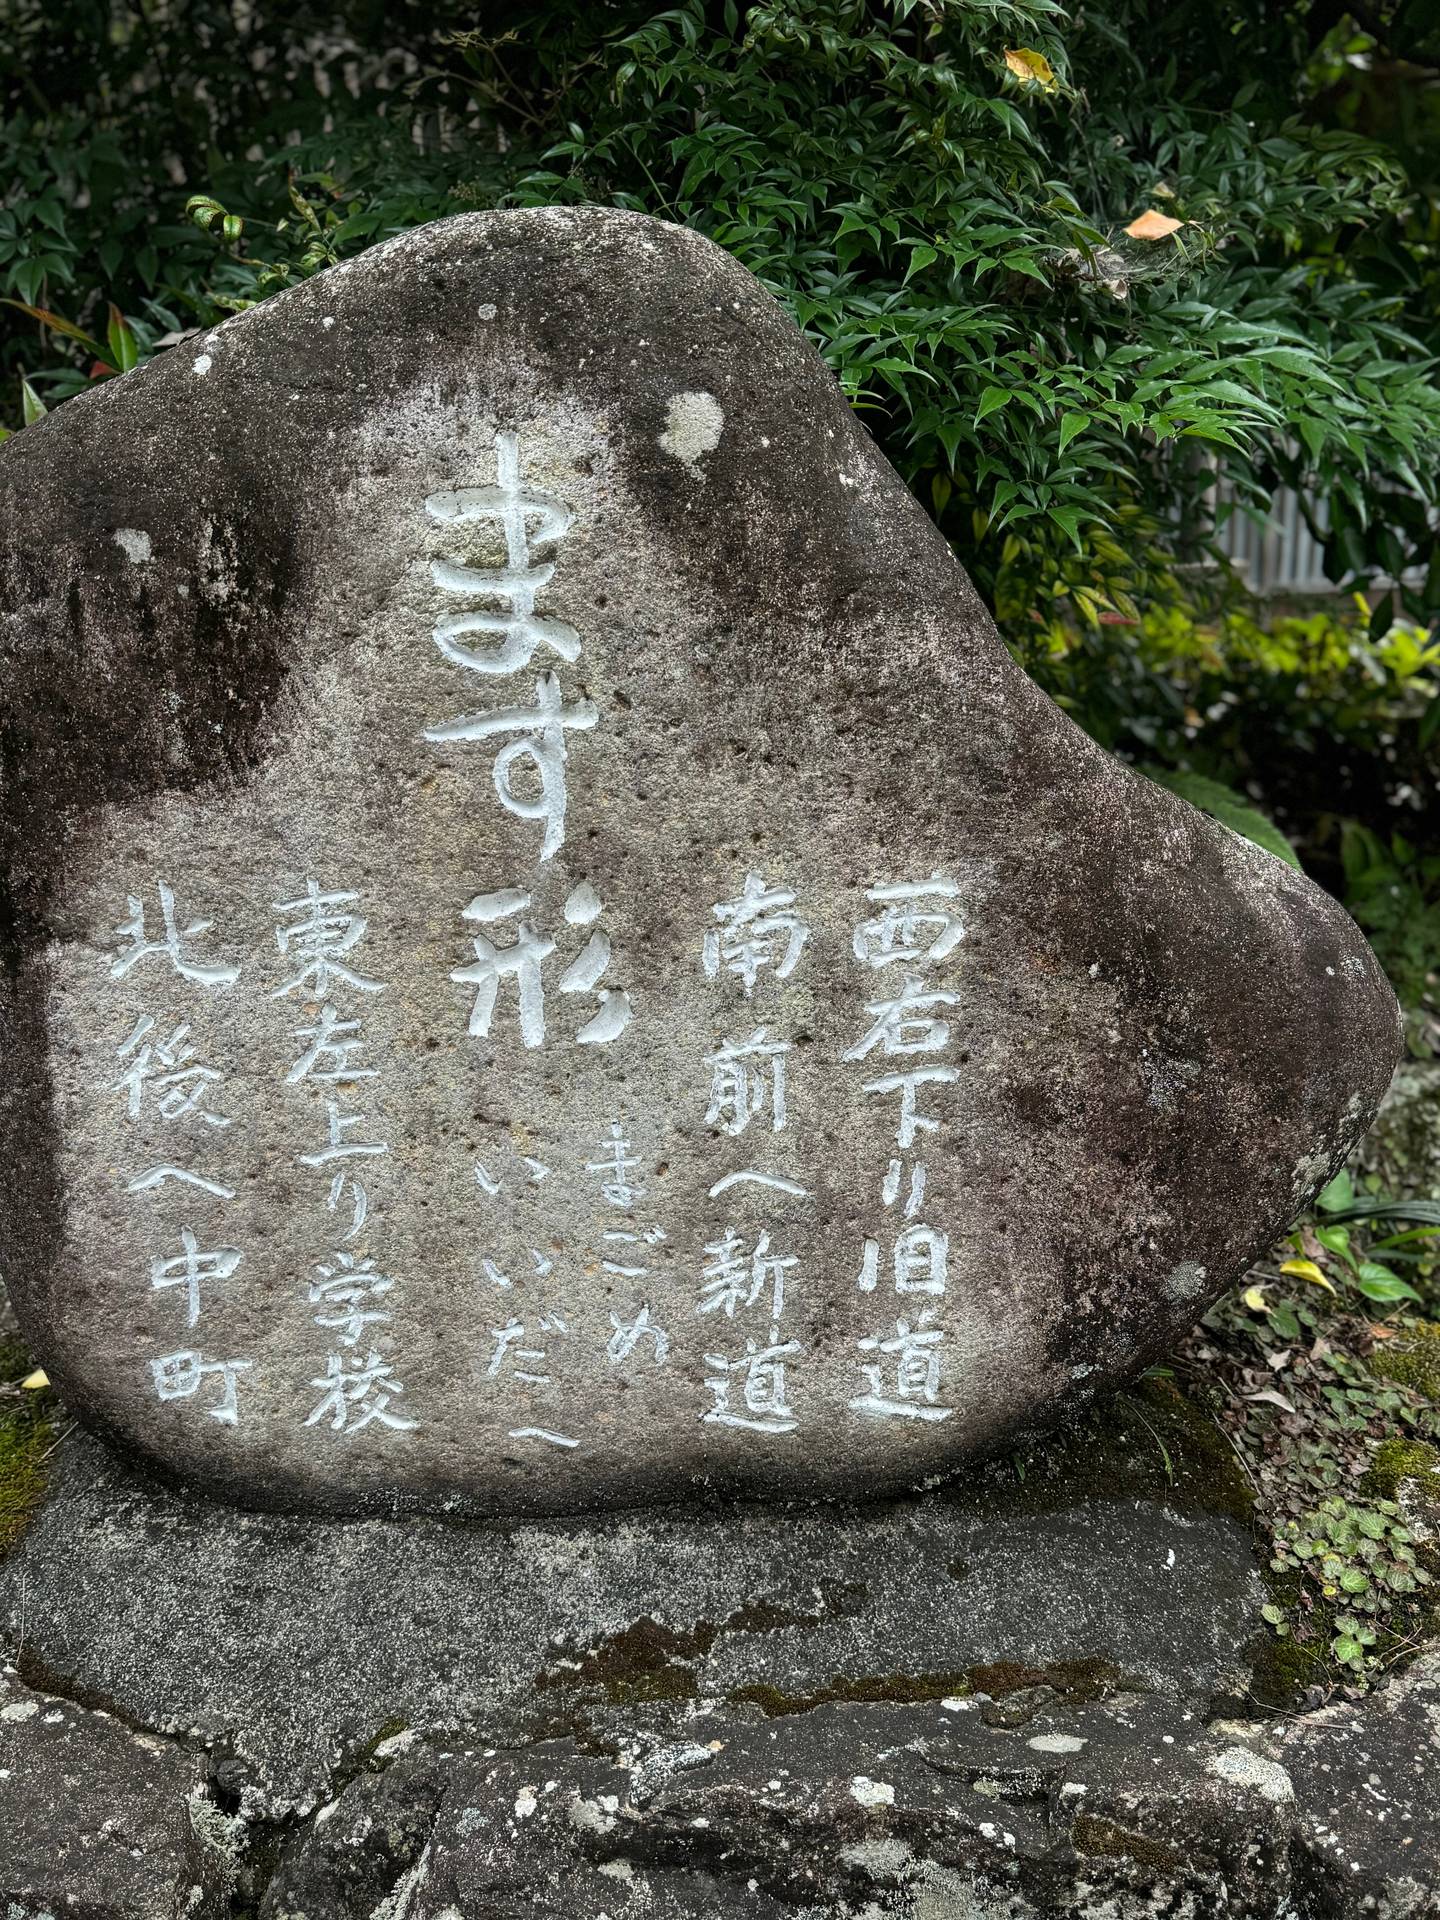 西右下り旧道
南前へ新道
ます形
まごめ
いいだへ
東左上り学校
北後へ中町